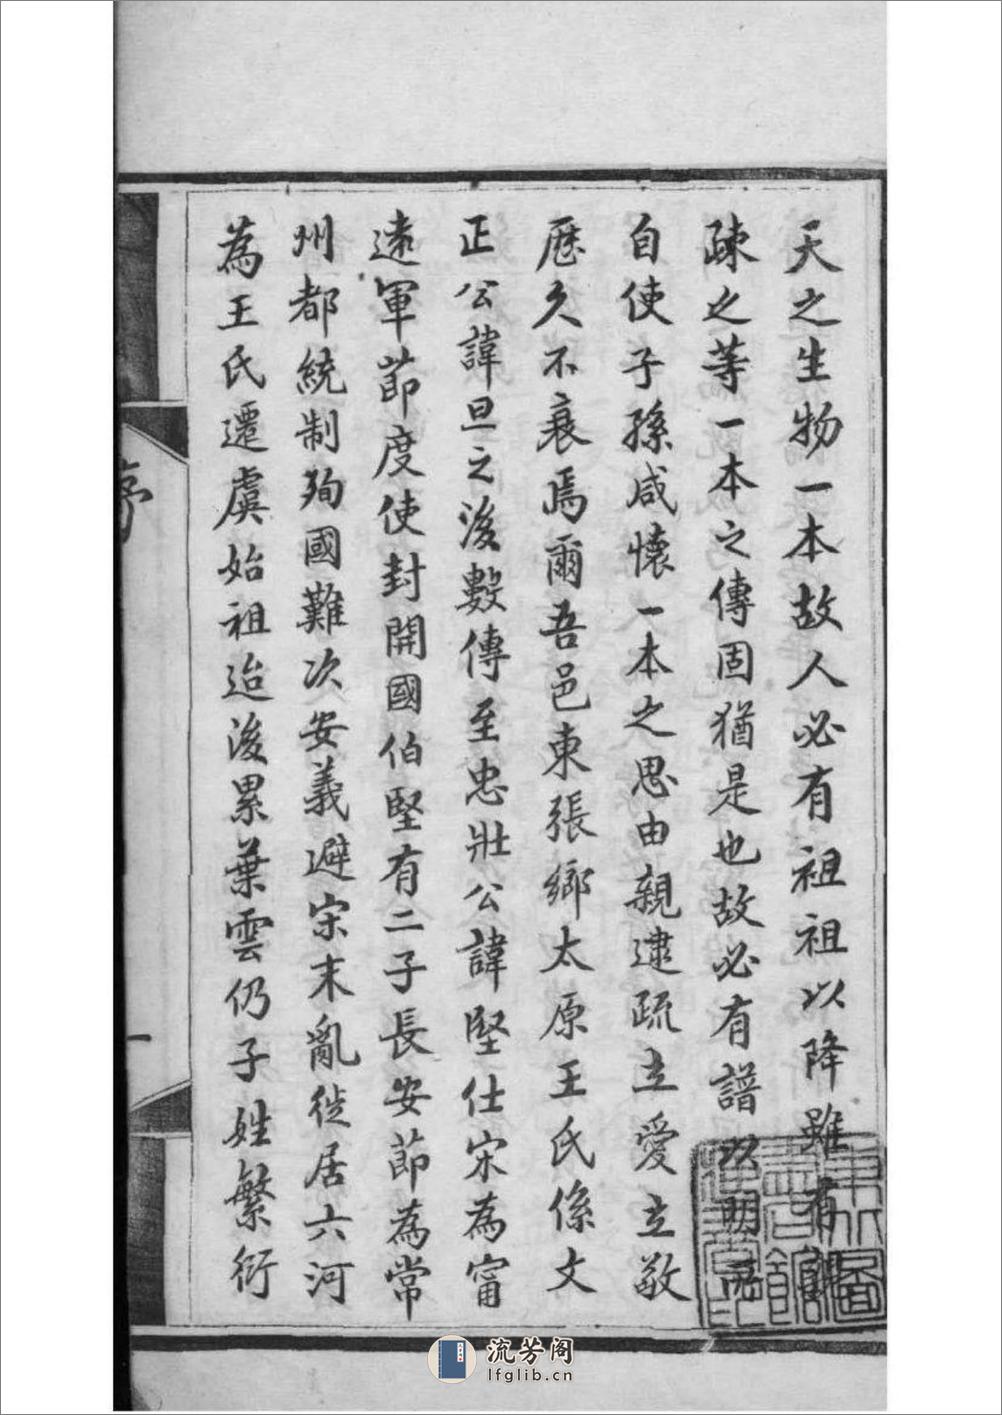 天之生物一本故人必有祖祖以降雖有親
疎之等一本之傳固猶是也故必有譜以明所
自使子孫咸懷一本之思由親逮疏立愛立敬
歷久不衰焉爾吾邑東張鄉太原王氏係文
正公諱旦之後數傳至忠壯公諱堅仕宋為甯
遠軍節度使封開國伯堅有二子長安節為常
州都統制殉國難次安義避宋末亂徙居六河
為王氏遷虞始祖迨後累葉雲仍子姓繁衍
流芳阁
lfglib.cn